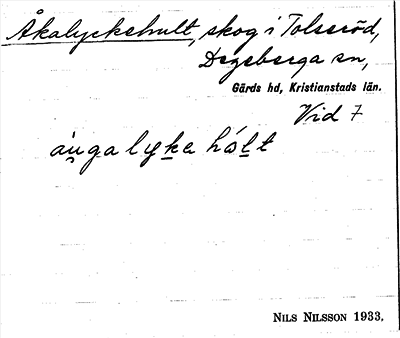 Åkalyckehult, skog i Tolseröd,
Degeberga sn,
Gärds hd, Kristianstads län.
Vid 7
áu̯ga lyke hó̱lt
NILS NILSSON 1933.